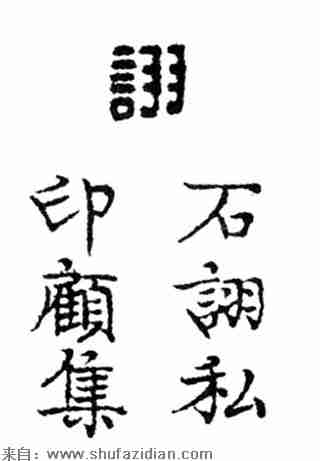 詡
石詡私
印顧集
来自：www.shufazidian.com